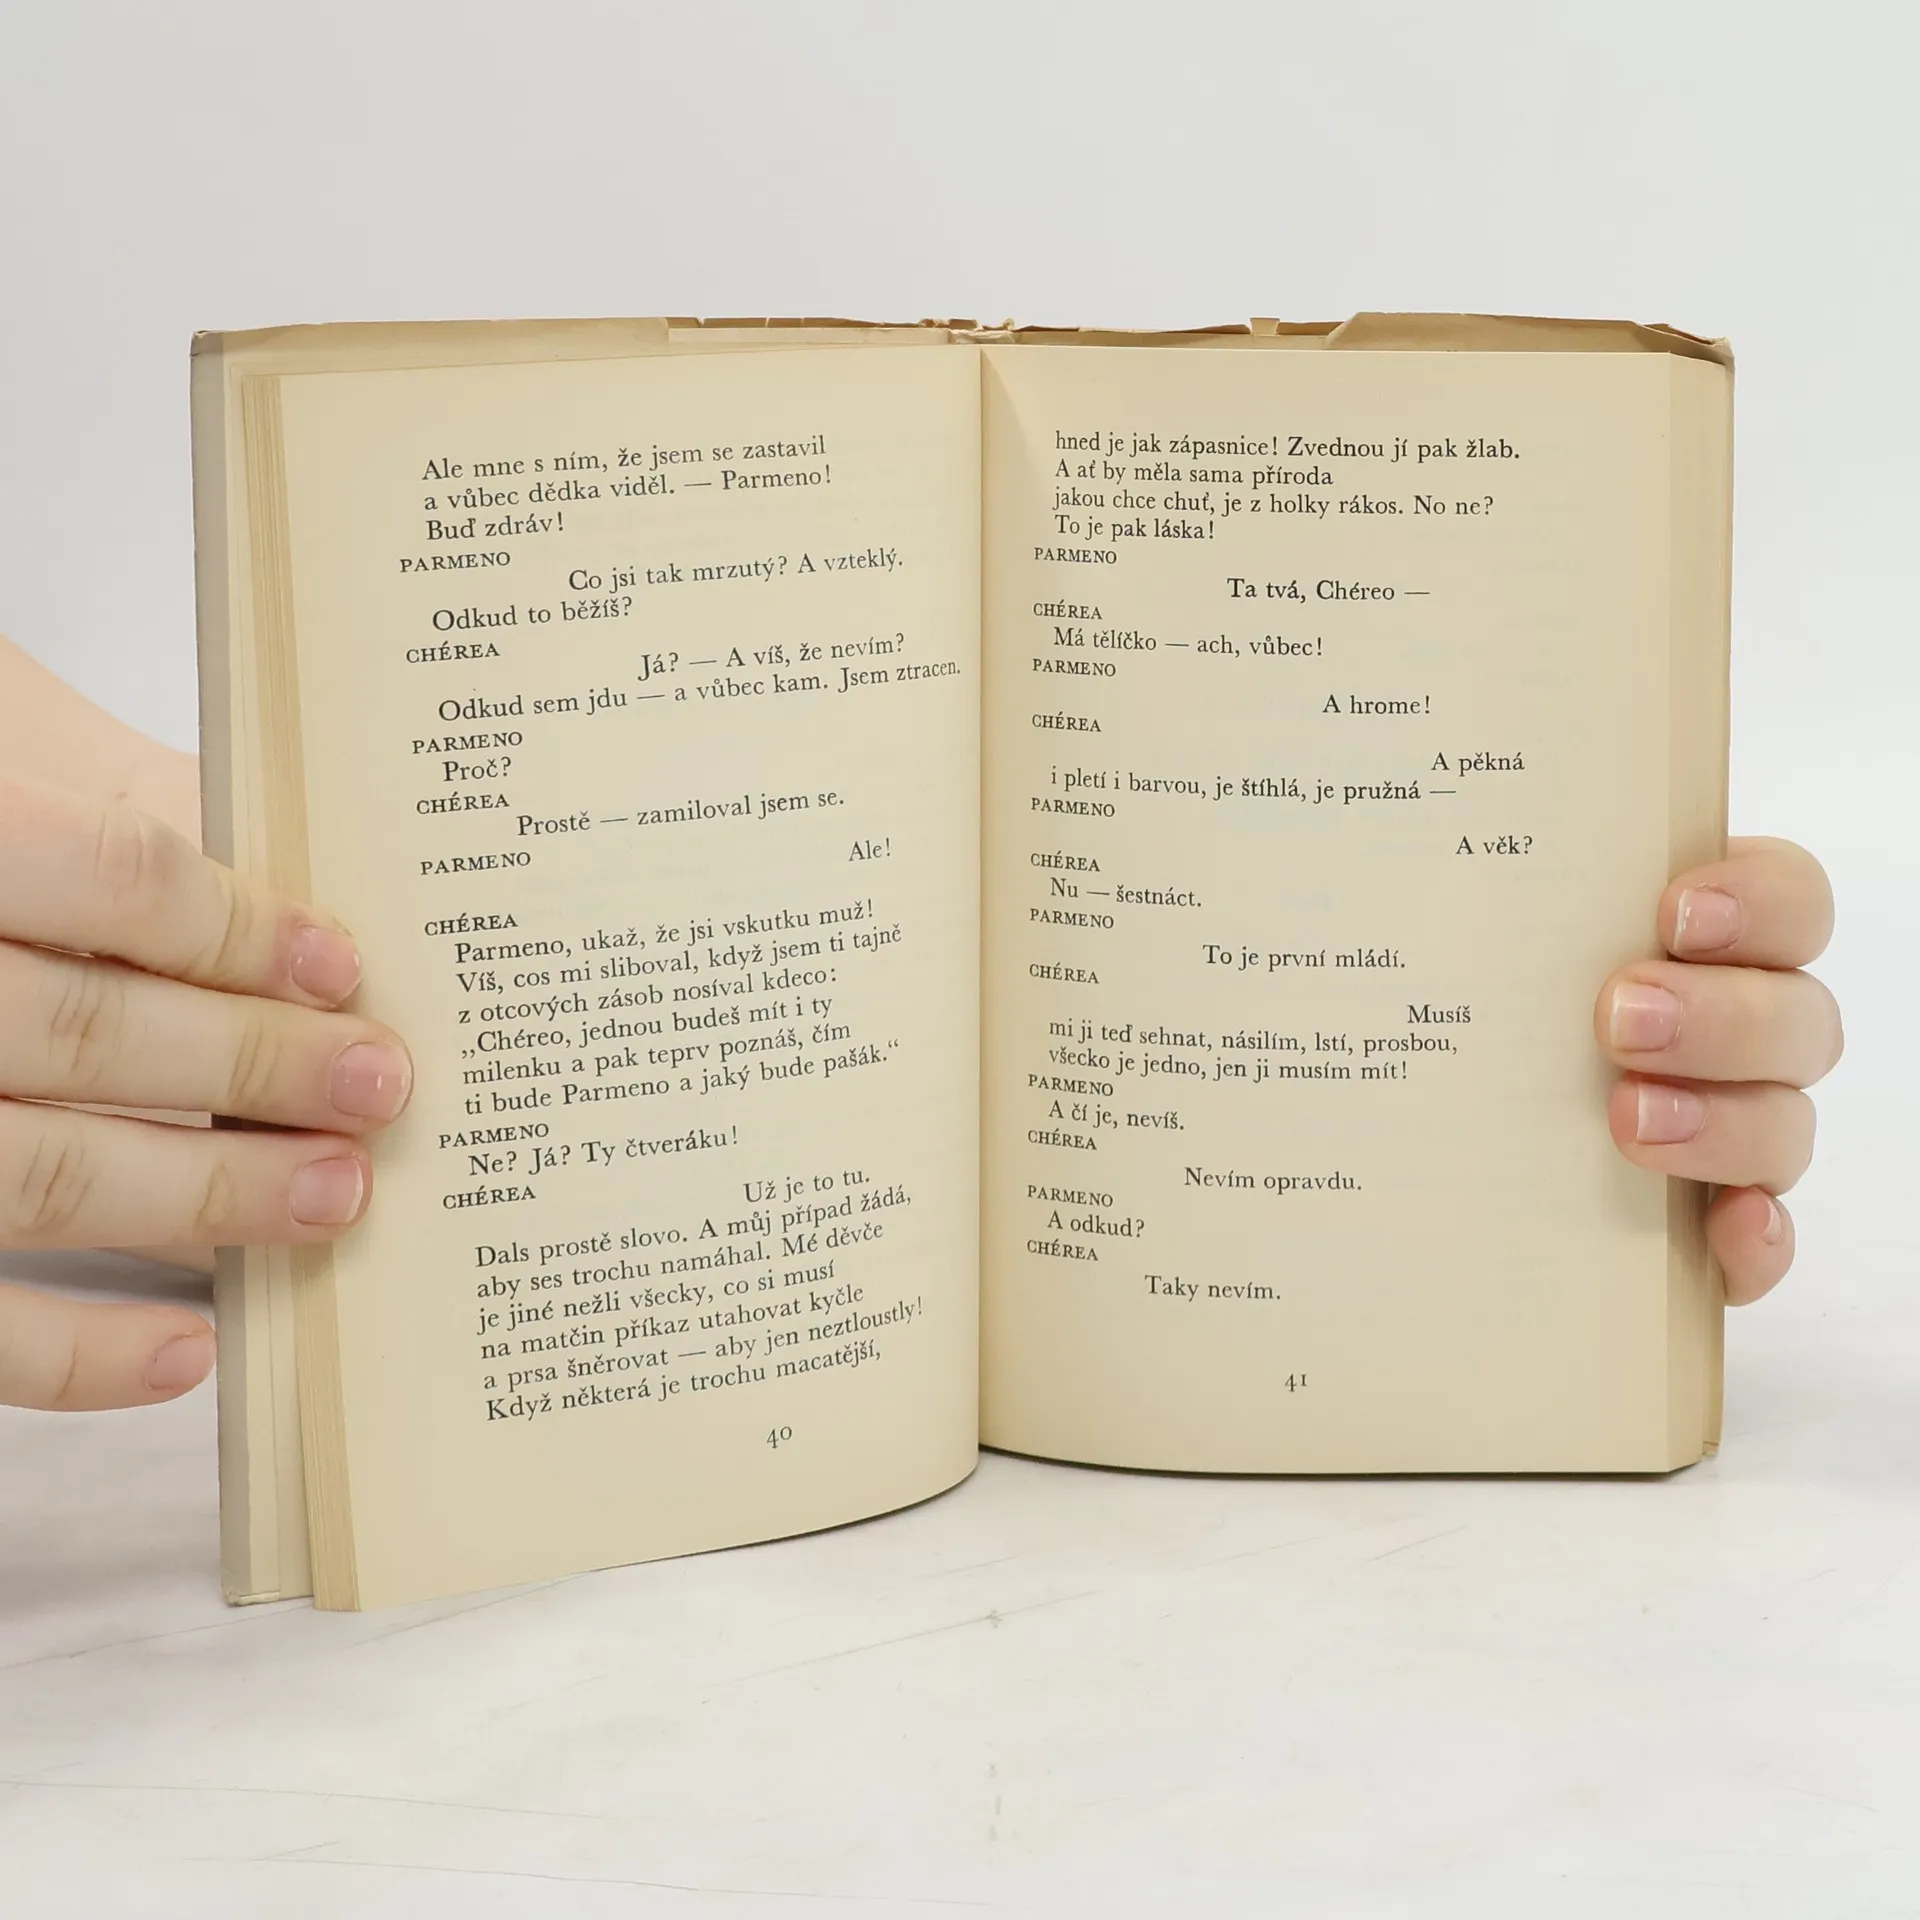 Ale mne s ním, že jsem se zastavil
a vůbec dědka viděl. — Parmeno!
Buď zdráv!
PARMENO
Co jsi tak mrzutý? A vzteklý.
Odkud to běžíš?
CHÉREA
Já? — A víš, že nevím?
Odkud sem jdu — a vůbec kam. Jsem ztracen.
PARMENO
Proč?
CHÉREA
Prostě — zamiloval jsem se.
PARMENO
Ale!
CHÉREA
Parmeno, ukaž, že jsi vskutku muž!
Víš, cos mi sliboval, když jsem ti tajně
z otcových zásob nosíval kdeco:
„Chéreo, jednou budeš mít i ty
milenku a pak teprv poznáš, čím
ti bude Parmeno a jaký bude pašák.“
PARMENO
Ne? Já? Ty čtveráku!
CHÉREA
Už je to tu.
Dals prostě slovo. A můj případ žádá,
aby ses trochu namáhal. Mé děvče
je jiné nežli všecky, co si musí
na matčin příkaz utahovat kyčle
a prsa šněrovat — aby jen neztloustly!
Když některá je trochu macatější,
40
hned je jak zápasnice! Zvednou jí pak žlab.
A ať by měla sama příroda
jakou chce chuť, je z holky rákos. No ne?
To je pak láska!
PARMENO
Ta tvá, Chéreo —
CHÉREA
Má tělíčko — ach, vůbec!
PARMENO
A hrome!
CHÉREA
A pěkná
i pletí i barvou, je štíhlá, je pružná —
PARMENO
A věk?
CHÉREA
Nu — šestnáct.
PARMENO
To je první mládí.
CHÉREA
Musíš
mi ji teď sehnat, násilím, lstí, prosbou,
všecko je jedno, jen ji musím mít!
PARMENO
A čí je, nevíš.
CHÉREA
Nevím opravdu.
PARMENO
A odkud?
CHÉREA
Taky nevím.
41